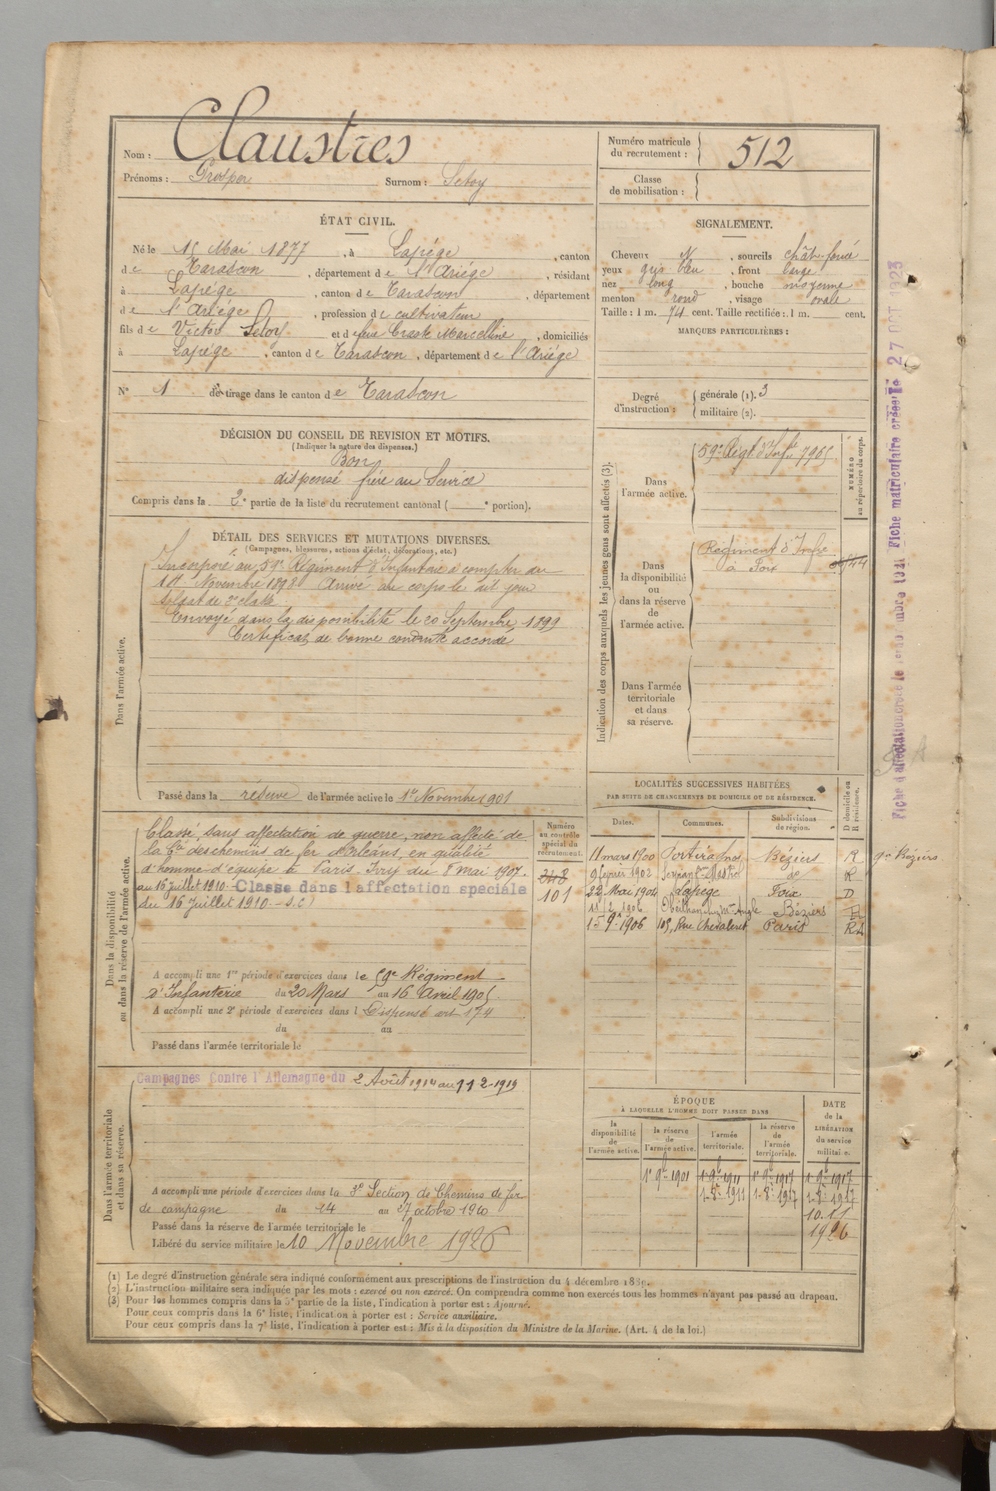 Nom : Claustres
Prénoms : Prosper Surnom : Setoy
Numéro matricule du recrutement : 512
Classe de mobilisation :
ÉTAT CIVIL.
Né le 15 Mai 1877, à Lapége, canton
de Tarascon, département de l'Ariége, résidant
à Lapége, canton de Tarascon, département
de l'Ariége, profession de cultivateur
fils de Victor Setoy et de feue Marcelline, domiciliés
à Lapége, canton de Tarascon, département de l'Ariége
SIGNALEMENT.
Cheveux N, sourcils chât-foncé
yeux gris bleu, front large
nez long, bouche moyenne
menton rond, visage ovale
Taille : 1 m. 74 cent. Taille rectifiée : 1 m. cent.
MARQUES PARTICULIÈRES :
N° 1 de tirage dans le canton de Tarascon
Degré d'instruction : générale (1). 3
militaire (2).
DÉCISION DU CONSEIL DE REVISION ET MOTIFS.
(Indiquer la nature des dispenses.)
Bon
dispensé frère au Service
Compris dans la 2e partie de la liste du recrutement cantonal ( e portion).
DÉTAIL DES SERVICES ET MUTATIONS DIVERSES.
(Campagnes, blessures, actions d'éclat, décorations, etc.)
Dans l'armée active.
Incorporé au 59e Régiment d'Infanterie à compter du
Novembre 1898 Arrivé au corps le dit jour
soldat de 2e classe
Envoyé dans la disponibilité le 20 Septembre 1899
Certificat de bonne conduite accordé
Passé dans la réserve de l'armée active le 1er Novembre 1901
Indication des corps auxquels les jeunes gens sont affectés (3).
NUMÉRO au répertoire du corps.
Dans l'armée active.
59e Régt d'Infie 7965
Dans la disponibilité ou dans la réserve de l'armée active.
Régiment d'Infie
à Foix
Dans l'armée territoriale et dans sa réserve.
LOCALITÉS SUCCESSIVES HABITÉES
PAR SUITE DE CHANGEMENTS DE DOMICILE OU DE RÉSIDENCE.
Dates. Communes. Subdivisions de région. D domicile ou R résidence.
11 mars 1900 Portiragnes Béziers R
9 février 1902 do R
22 Mai 1904 Lapege Foix D
Béziers
1906 105, Rue Chevaleret Paris
Dans la disponibilité ou dans la réserve de l'armée active.
Classé sans affectation de guerre, non affecté de
la des chemins de fer d'Orléans, en qualité
d'homme d'équipe à Paris-Ivry du 8 mai 1907.
au 16 juillet 1910 - Classé dans l'affectation spéciale
du 16 Juillet 1910
Numéro au contrôle spécial du recrutement.
101
A accompli une 1re période d'exercices dans le 59e Régiment
d'Infanterie du 20 Mars au 16 Avril 1905
A accompli une 2e période d'exercices dans l Dispensé art 174
du au
Passé dans l'armée territoriale le
Dans l'armée territoriale et dans sa réserve.
Campagnes Contre l'Allemagne du 2 Août 1914 au 11-2-1919
A accompli une période d'exercices dans la 3e Section de Chemins de fer
de campagne du 24 au 27 octobre 1910
Passé dans la réserve de l'armée territoriale le
Libéré du service militaire le 10 Novembre 1926
ÉPOQUE
À LAQUELLE L'HOMME DOIT PASSER DANS
la disponibilité de l'armée active. la réserve de l'armée active. l'armée territoriale. la réserve de l'armée territoriale.
DATE de la LIBÉRATION du service militaire.
1901 1911 1917 1917
1-8-1911 1-8-1917
10.11
1926
(1) Le degré d'instruction générale sera indiqué conformément aux prescriptions de l'instruction du 4 décembre 1889.
(2) L'instruction militaire sera indiquée par les mots : exercé ou non exercé. On comprendra comme non exercés tous les hommes n'ayant pas passé au drapeau.
(3) Pour les hommes compris dans la 5e partie de la liste, l'indication à porter est : Ajourné.
Pour ceux compris dans la 6e liste, l'indication à porter est : Service auxiliaire.
Pour ceux compris dans la 7e liste, l'indication à porter est : Mis à la disposition du Ministre de la Marine. (Art. 4 de la loi.)
Fiche matriculaire créée le 27 OCT 1923